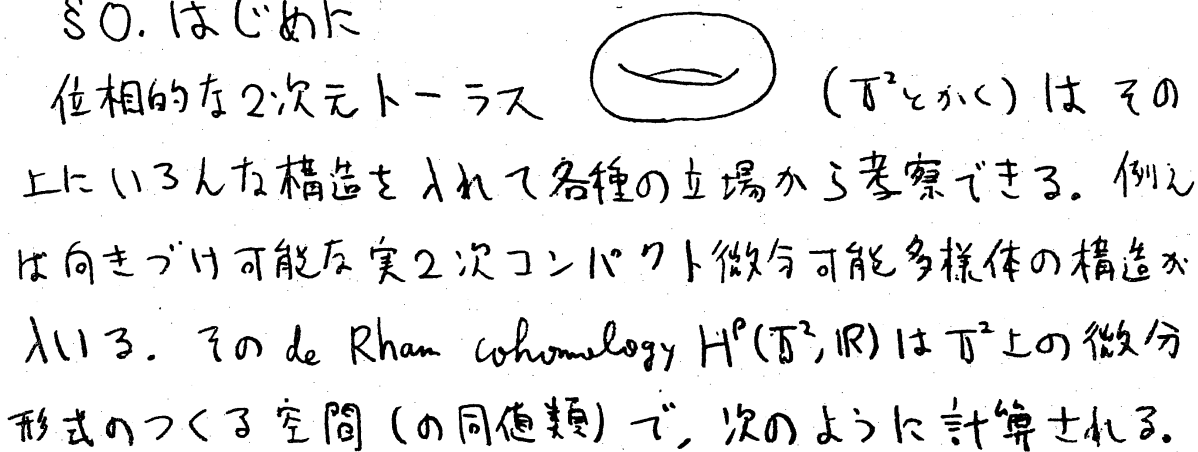 §0. はじめに
位相的な2次元トーラス (𝕋²とかく) は その
上にいろんな構造を入れて各種の立場から考察できる. 例え
ば向きづけ可能な実2次コンパクト微分可能多様体の構造が
入いる. その de Rham cohomology Hᵖ(𝕋², ℝ) は 𝕋²上の微分
形式のつくる空間 (の同値類) で, 次のように計算される.